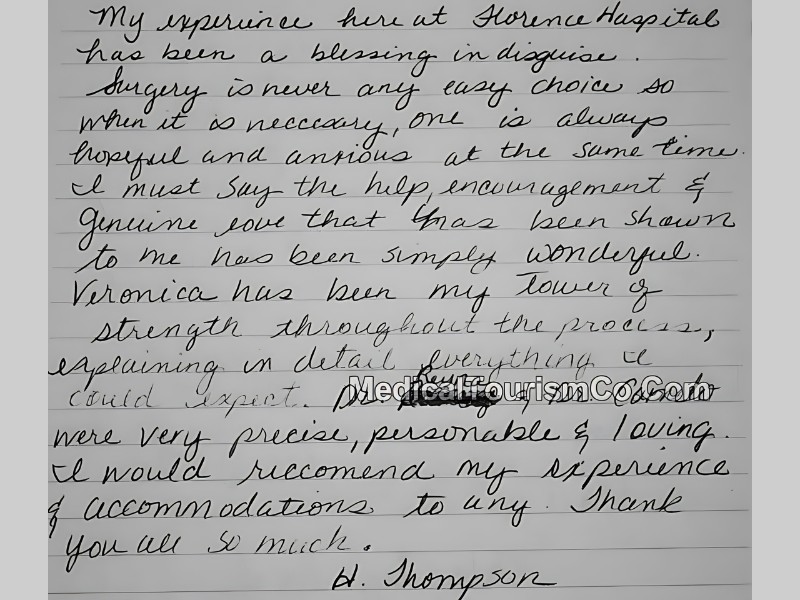 My experience here at Florence Hospital
has been a blessing in disguise.
Surgery is never any easy choice so
when it is neccesary, one is always
hopeful and anxious at the same time.
I must say the help, encouragement &
genuine love that has been shown
to me has been simply wonderful.
Veronica has been my Tower of
strength throughout the process,
explaining in detail everything I
could expect. Dr. & Dr.
MedicalTourismCo.Com
were very precise, personable & loving.
I would reccomend my experience
& accommodations to any. Thank
you all so much.
H. Thompson